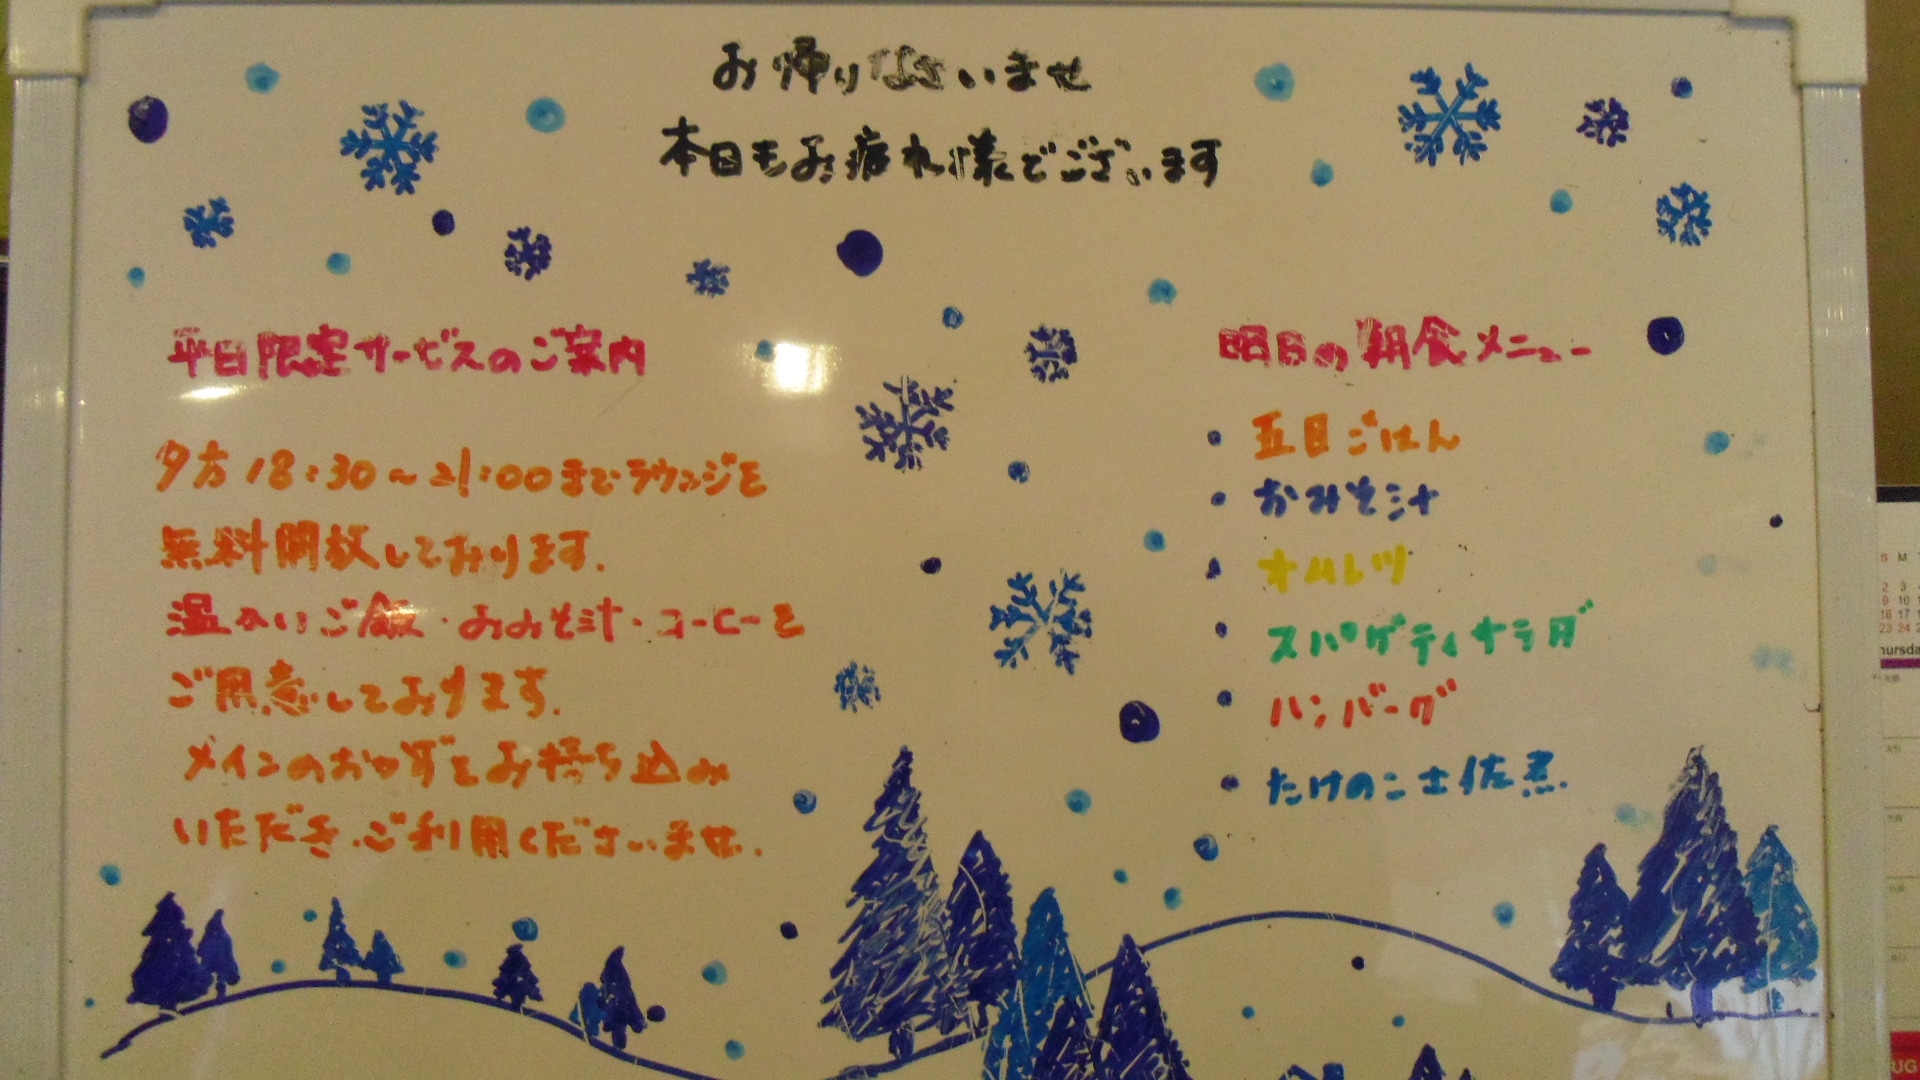 お帰りなさいませ
本日もお疲れ様でございます
平日限定サービスのご案内
夕方18:30～21:00までラウンジを
無料開放しております.
温かいご飯・おみそ汁・コーヒーを
ご用意しております.
メインのおかずをお持ち込み
いただき、ご利用くださいませ.
明日の朝食メニュー
・五目ごはん
・おみそ汁
・オムレツ
・スパゲティサラダ
・ハンバーグ
・たけのこ土佐煮.
S M
2 3
9 10
16 17
23 24